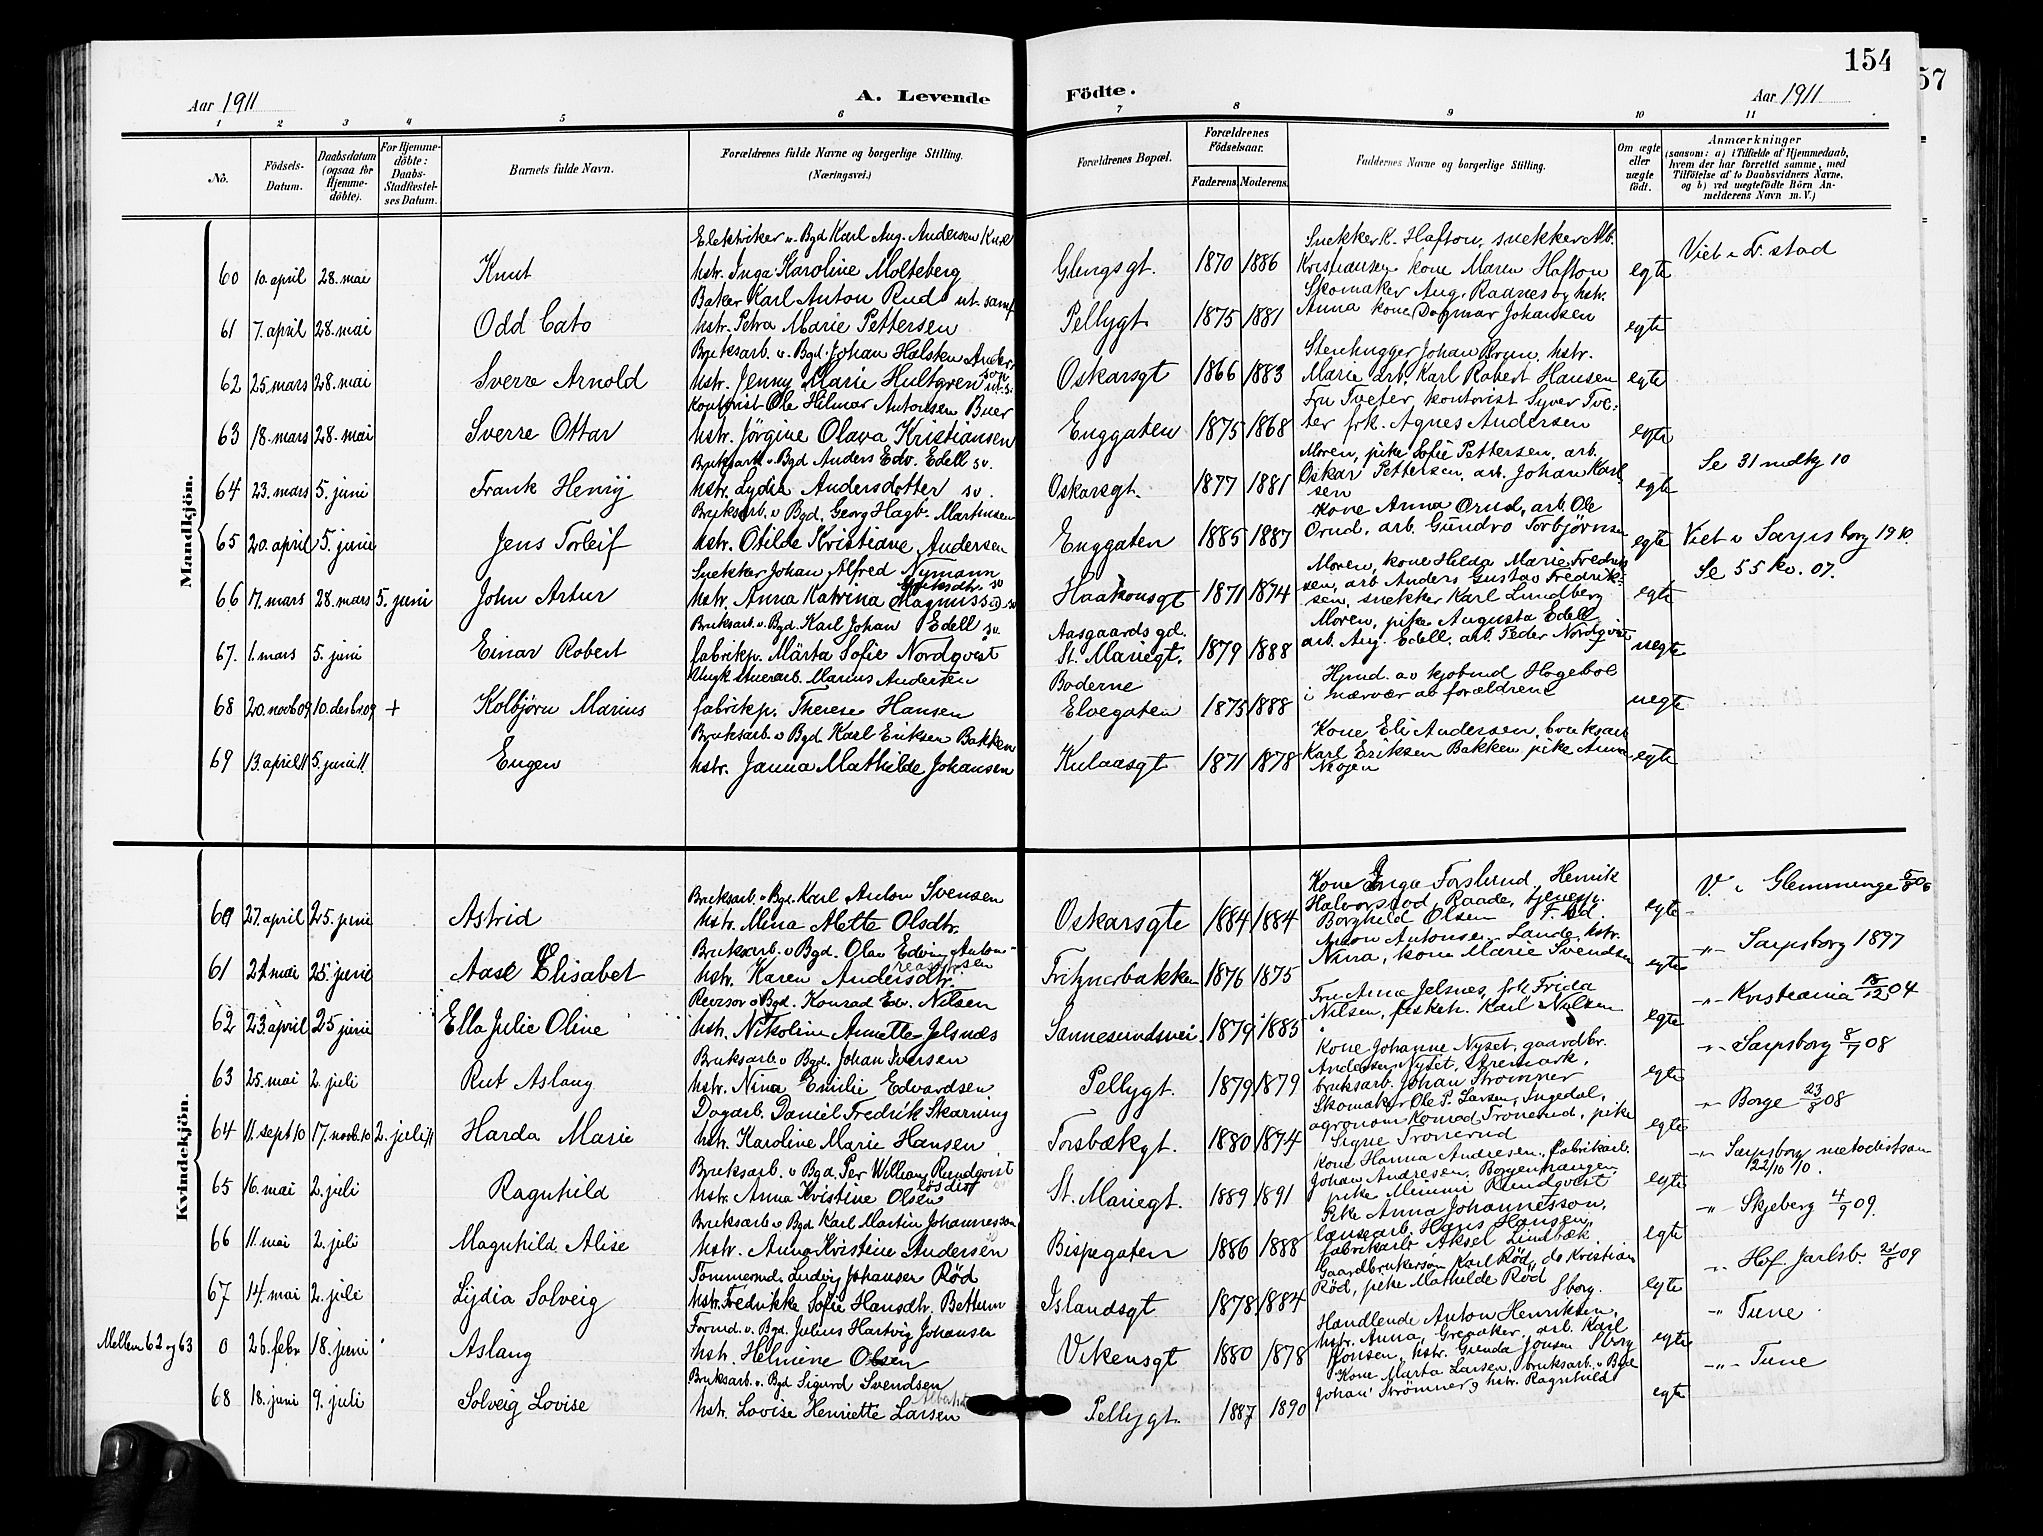 154
57
Aar 1911
A. Levende
Födte.
Aar 1911
1 2 3 4 5 6 7 8 9 10 11
No.
Födsels-Datum.
Daabsdatum (ogsaa for Hjemme-döbte).
For Hjemme-döbte: Daabs-Stadfæstel-ses Datum.
Barnets fulde Navn.
Forældrenes fulde Navne og borgerlige Stilling.
(Næringsvei.)
Forældrenes Bopæl.
Forældrenes Födselsaar.
Faderens. Moderens.
Faddernes Navne og borgerlige Stilling.
Om ægte eller uægte födt.
Anmærkninger
(saasom: a) i Tilfælde af Hjemmedaab, hvem der har forrettet samme, med Tilföielse af to Daabsvidners Navne, og b) ved uægtefödte Börn An-melderens Navn m. V.)
Mandkjön.
Elektriker u. Bgd Karl Aug. Andersen
60 10. april 28. mai Knut hstr. Inga Karoline Molteberg Glengsgt. 1870 1886 Snekker K. Hafton, snekker Alb. Kristiansen kone Maren Hafton egte Viet i F.stad
Baker Karl Anton Rud ut. samf
61 7. april 28. mai Odd Cato hstr. Petra Marie Pettersen Pellygt. 1875 1881 Skomaker Aug. Radnes og hstr. Anna kone Dagmar Johansen egte
Bruksarb. u. Bgd. Johan Halsten Anders son
62 25. mars 28. mai Sverre Arnold hstr. Jenny Marie Hultgren ut. s. Oskarsgt 1866 1883 Stenhugger Johan Brun, hstr. Marie arb. Karl Robert Hansen egte
Kontorist Ole Hilmar Antonsen Buer
63 18. mars 28. mai Sverre Ottar hstr. Jörgine Olava Kristiansen Enggaten 1875 1868 Fru Tveter, kontorist Syver Tve-ter frk. Agnes Andersen egte
Bruksarb. u. Bgd Anders Edv. Edell sv.
64 23. mars 5. juni Frank Henry hstr. Lydia Andersdotter sv. Oskarsgt. 1877 1881 Moren, pike Sofie Pettersen, arb. Oskar Pettersen, arb. Johan Karlsen egte Se 31 mdkj 10
Bruksarb. u. Bgd. Georg Hagb. Martinsen
65 20. april 5. juni Jens Torleif hstr. Otilde Kristiane Andersen Enggaten 1885 1887 Kone Anna Ornd, arb. Ole Ornd, arb. Gundro Torbjørnsen egte Viet i Sarpsborg 1910.
Snekker Johan Alfred Nymann
66 17. mars 28. mars 5. juni John Artur hstr. Anna Katrina Magnuss sv Haakonsgt 1871 1874 Moren, kone Hilda Marie Fredrik sen, arb Anders Gustav Fredrik-sen, snekker Karl Lundberg egte Se 55 kv. 07.
Bruksarb. u. Bgd. Karl Johan Edell sv.
67. 1. mars 5. juni Einar Robert fabrikp. Märta Sofie Nordqvist Aasgaards gd. St. Mariegt. 1879 1888 Moren, pike Augusta Edell arb. Aug. Edell, arb. Peder Nordqvist uegte
Ungk stuerarb. Marius Andersen
68 20. novb 09 10. desbr. 09 + Kolbjørn Marius fabrikp. Therese Hansen Boderne Elvegaten 1873 1888 Hjmd. av kjøbmd Hogebol i nærvær av forældrene uegte
Bruksarb. u Bgd Karl Eriksen Bakken
69 13. april 11 5. juni 11. Eugen hstr. Janna Mathilde Johansen Kulaasgt 1871 1878 Kone Eli Andersen, bruksarb Karl Eriksen Bakken, pike Anna egte
Kvindekjön.
Bruksarb. u Bgd. Karl Anton Svensen
60 27. april 25. juni Astrid hstr. Mina Alette Olsdtr. Oskarsgte 1884 1884 Kone Inga Forslund, Henrik Halvorsrød, Raade, tjenestp. Borghild Olsen F.std. egte V. i Glemminge
Bruksarb. u. Bgd. Olav Edvin Anton-sen
61 21 mai 25. juni Aase Elisabet hstr. Karen Andersdtr. Fritznerbakken 1876 1875 Anton Antonsen Lande, hstr. Nina, kone Marie Svendsen egte -"- Sarpsborg 1897
Revisor u Bgd. Konrad Edv. Nilsen
62 23. april 25 juni Ella Julie Oline hstr. Nikoline Annette Jelsnæs Sannesundsvei. 1879 1885 Fru Anna Jelsnes, frk Frida Nilsen, fiskeh. Karl Nilsen egte -"- Kristiania 04
Bruksarb u Bgd. Johan Iversen
63 25. mai 2. juli Rut Aslaug hstr. Nina Emilie Edvardsen Pellygt. 1879 1879 Kone Johanne Nyset, gaardbr. Andersen Nyset, Aremark, bruksarb. Johan Strømner egte -"- Sarpsborg 8/7 08
Dagarb. Daniel Fredrik Skarning
64 11. sept 10 17. novb. 10 2. juli 11 Harda Marie hstr. Karoline Marie Hansen Torsbækgt. 1880 1874 Skomaker Ole P. Larsen, Ingedal, agronom Konrad Tronerud, pike Signe Tronerud egte " Borge 23/8 08
Bruksarb. u Bgd. Per William Rundqvist
65 16. mai 2. juli Ragnhild hstr. Anna Kristine Olsen St. Mariegt. 1889 1891 Kone Hanna Andresen, fabrikarb. Johan Andresen, Borgenhaugen, pike Mimmi Rundqvist egte -"- Sarpsborg metodistsam 22/10 10.
Bruksarb u Bgd Karl Martin Johannesson
66 11. mai 2. juli Magnhild Alise hstr. Anna Kristine Andersen Bispegaten 1886 1888 Pike Anna Johannesson, lensearb. Hans Hansen, fabrikarb Aksel Lindbæk. egte -"- Skjeberg 4/9 09.
Tömmermd. Ludvig Johansen Röd
67 14. mai 2. juli Lydia Solveig hstr. Fredrikke Sofie Hansdtr. Bettum Islandsgt 1878 1884 Gaardbrukersøn Karl Rød, do Kristian Rød, pike Mathilde Rød Sborg. egte " Hof. Jarlsb. 09
Formd. u. Bgd. Julius Hartvig Johansen
Mellem 62 og 63 0 26. febr 18. juni Aslaug hstr. Helmine Olsen Vikensgt 1880 1878 Handlende Anton Henriksen, hstr. Anna, Greaaker, arb. Karl Jonsen, hstr. Gunda Jonsen Sborg egte " Tune
Bruksarb. u. Bgd Sigurd Svendsen
68 18. juni 9. juli Solveig Lovise hstr. Lovise Henriette Larsen Pellygt. 1887 1890 Kone Marta Larsen, bruksarb. u Bgd Johan Strømner, hstr. Ragnhild egte -"- Tune